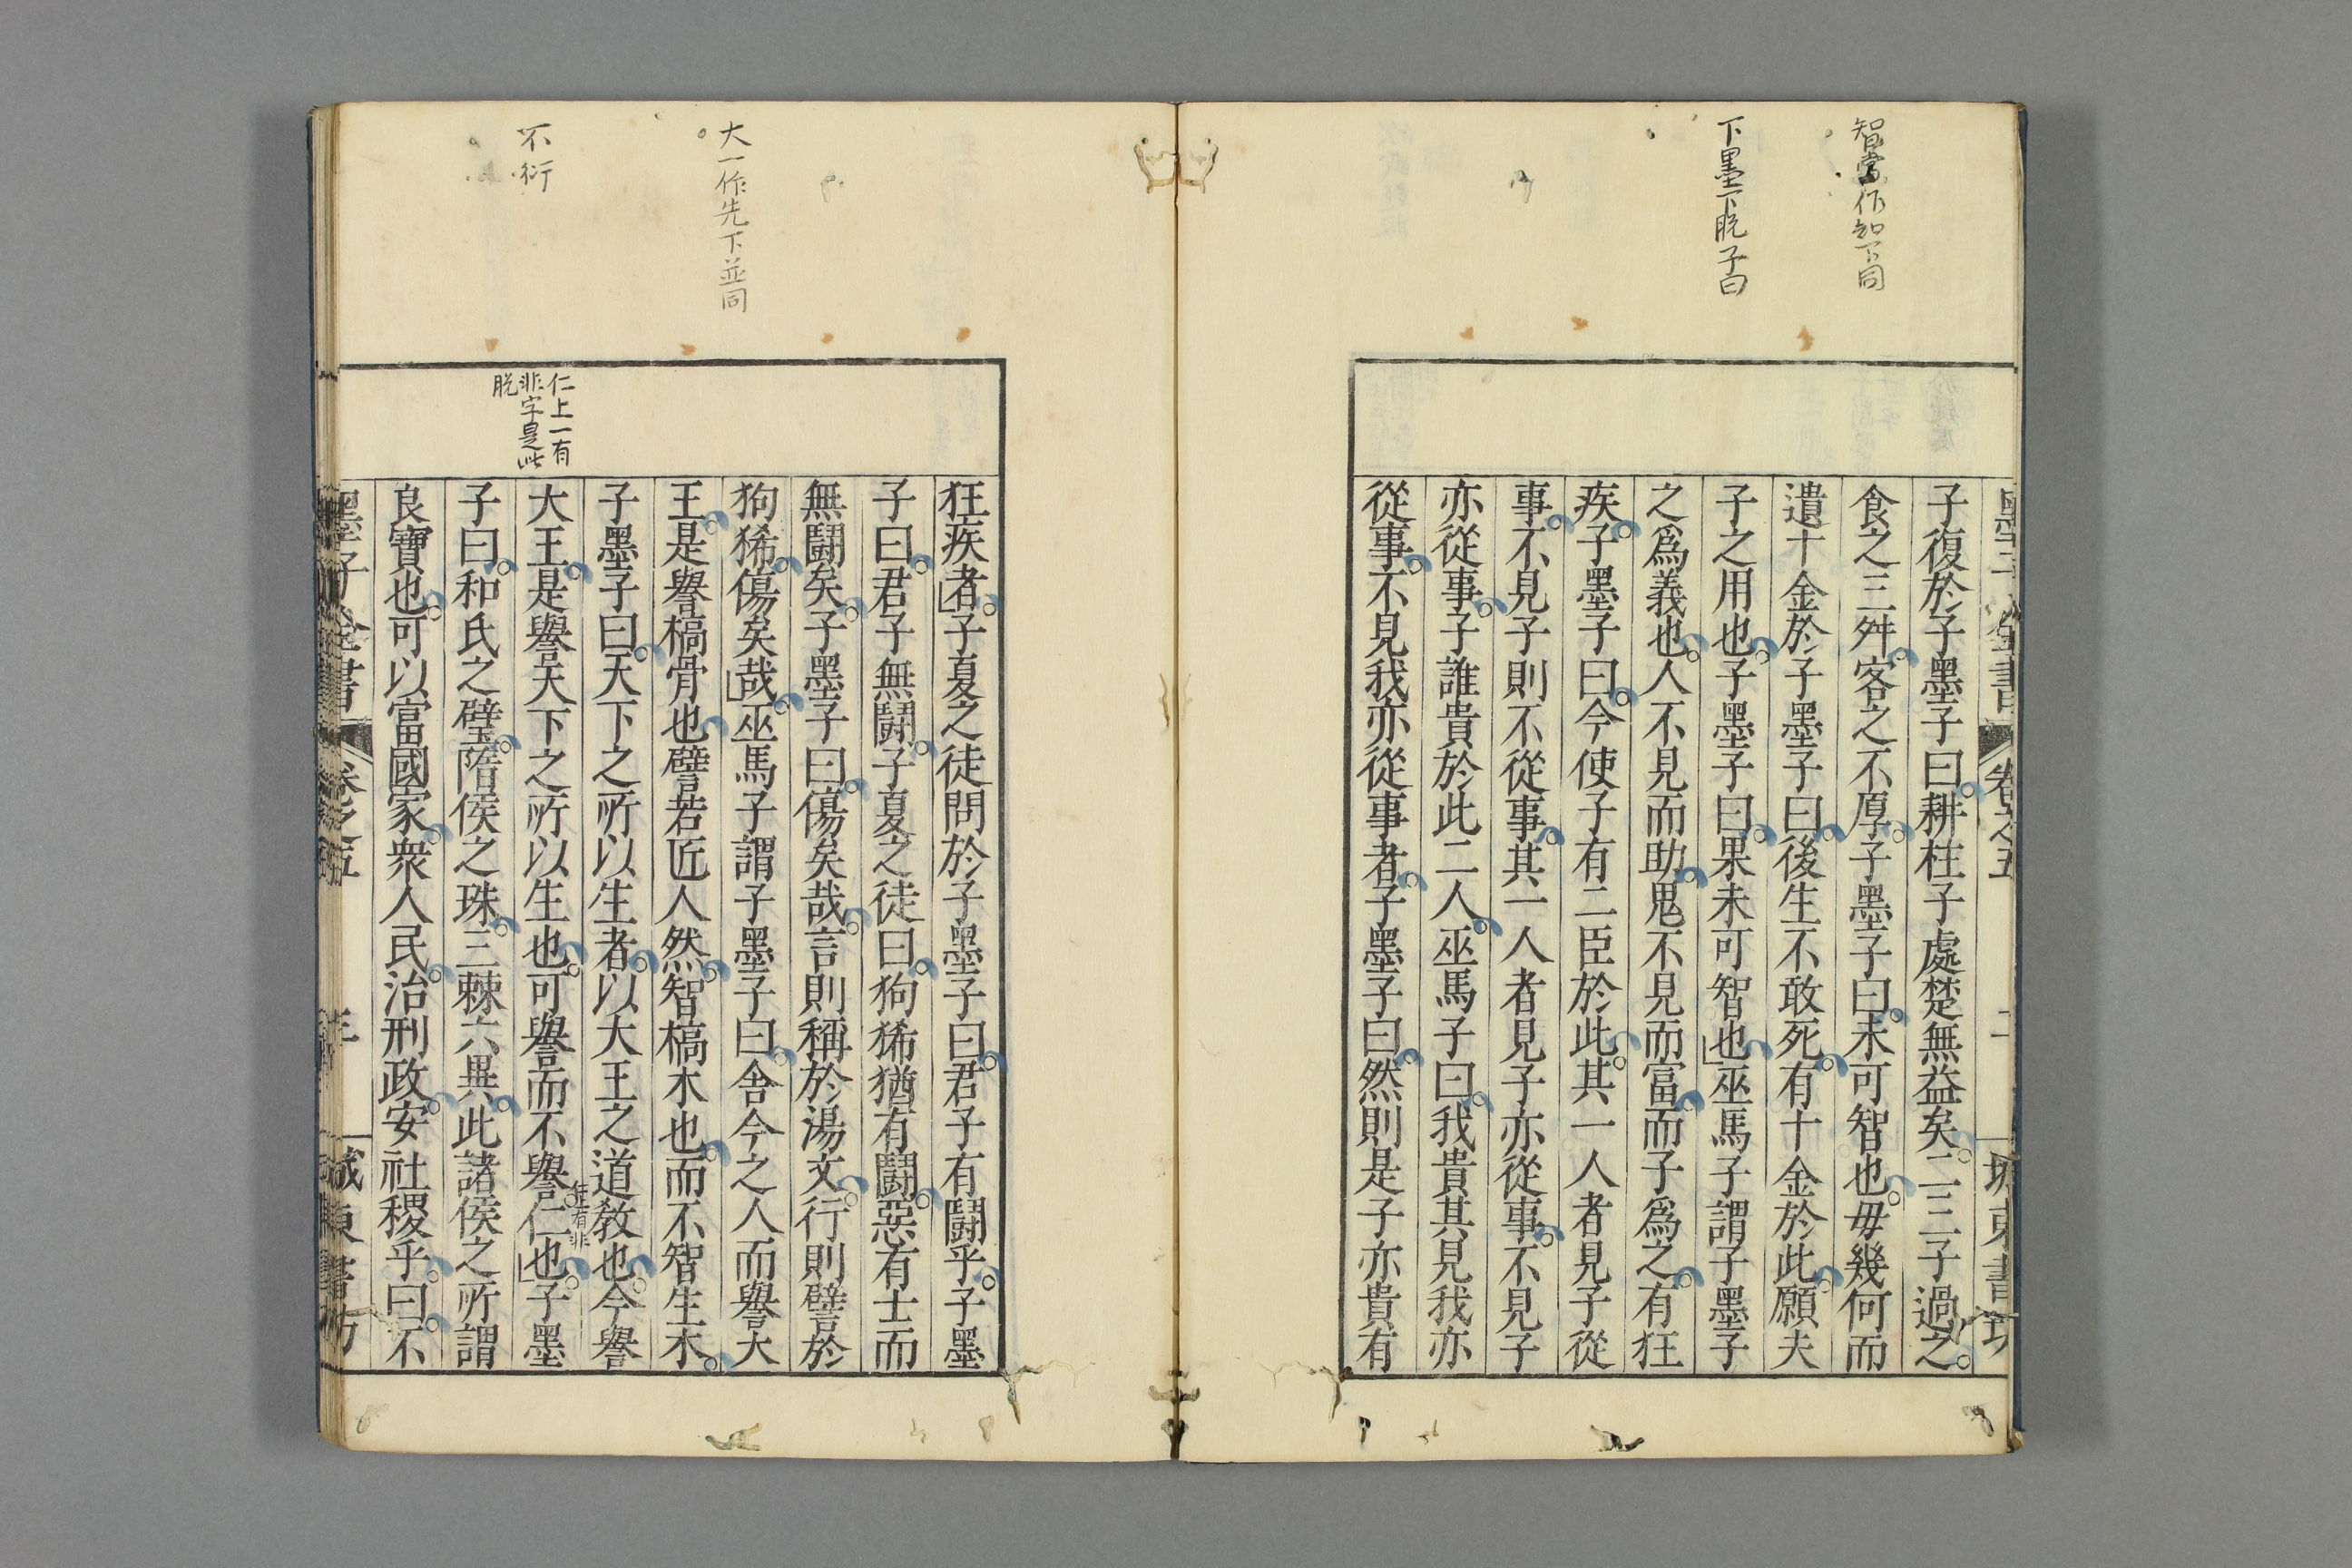 智當作知下同
下墨下脫子曰
卷之五
二
子復於子墨子曰耕柱子處楚無益矣二三子過之
食之三舛客之不厚子墨子曰未可智也毋幾何而
遺十金於子墨子曰後生不敢死有十金於此願夫
子之用也子墨子曰果未可智也巫馬子謂子墨子
之爲義也人不見而助鬼不見而富而子爲之有狂
疾子墨子曰今使子有二臣於此其一人者見子從
事不見子則不從事其一人者見子亦從事不見子
亦從事子誰貴於此二人巫馬子曰我貴其見我亦
從事不見我亦從事者子墨子曰然則是子亦貴有
大一作先下並同
不衍
仁上一有
非字是此
脫
狂疾者子夏之徒問於子墨子曰君子有鬪乎子墨
子曰君子無鬪子夏之徒曰狗狶猶有鬪惡有士而
無鬪矣子墨子曰傷矣哉言則稱於湯文行則譬於
狗狶傷矣哉巫馬子謂子墨子曰舍今之人而譽大
王是譽槁骨也譬若匠人然智槁木也而不智生木
子墨子曰天下之所以生者以大王之道教也今譽
大王是譽天下之所以生也可譽而不譽仁也子墨
子曰和氏之璧隋侯之珠三棘六異此諸侯之所謂
良寶也可以富國家衆人民治刑政安社稷乎曰不
墨子全書
卷之五
三
城東書坊